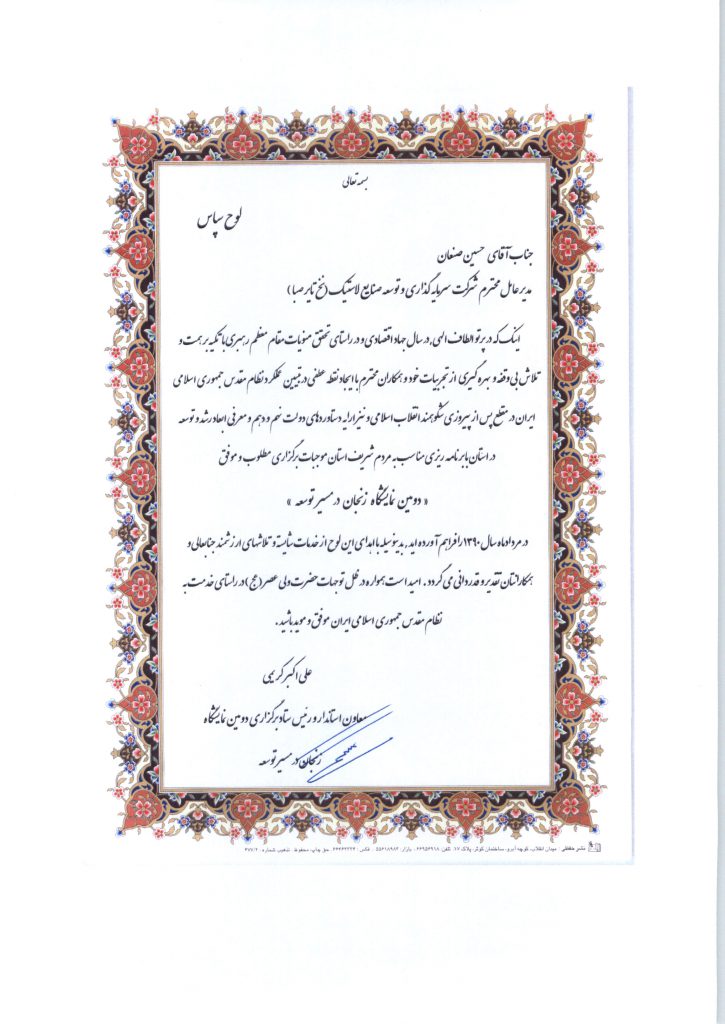 بسمه تعالی
لوح سپاس
جناب آقای حسین صنعان
مدیرعامل محترم شرکت سرمایه گذاری و توسعه صنایع لاستیک (نخ تایر صبا)
اینک که در پرتو الطاف الهی، در سال جهاد اقتصادی و در راستای تحقق منویات مقام معظم رهبری با تکیه بر همت و
تلاش بی وقفه و بهره گیری از تجربیات خود و همکاران محترم با ایجاد نقطه عطفی در تبیین عملکرد نظام مقدس جمهوری اسلامی
ایران در مقطع پس از پیروزی شکوهمند انقلاب اسلامی و نیز ارایه دستاوردهای دولت نهم و دهم و معرفی ابعاد رشد و توسعه
در استان با برنامه ریزی مناسب به مردم شریف استان موجبات برگزاری مطلوب و موفق
« دومین نمایشگاه زنجان در مسیر توسعه »
در مردادماه سال ۱۳۹۰ را فراهم آورده اید، بدینوسیله با اهدای این لوح از خدمات شایسته و تلاشهای ارزشمند جنابعالی و
همکارانتان تقدیر و قدردانی می گردد . امید است همواره در ظل توجهات حضرت ولی عصر (عج) در راستای خدمت به
نظام مقدس جمهوری اسلامی ایران موفق و موید باشید .
علی اکبر کریمی
معاون استاندار و رئیس ستاد برگزاری دومین نمایشگاه
زنجان در مسیر توسعه
نشر حفظی میدان انقلاب، کوچه آبرو، ساختمان کوثر، پلاک ۱۷، تلفن: ۶۶۹۵۶۹۱۸ بازار: ۵۵۶۱۸۹۸۲ فکس: حق چاپ، محفوظ تذهیب شماره